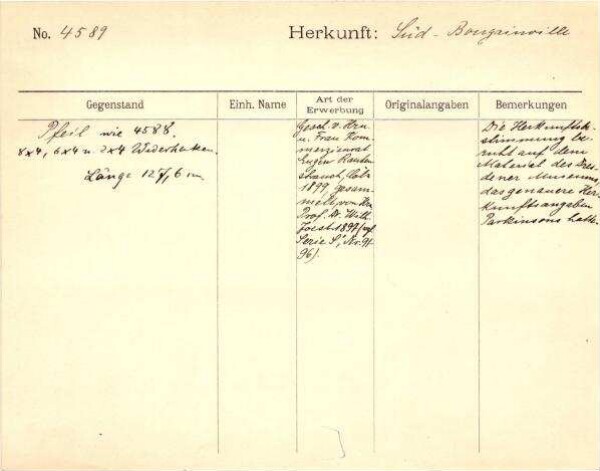 No. 4589
Herkunft: Süd-Bougainville
Gegenstand
Einh. Name
Art der
Erwerbung
Originalangaben
Bemerkungen
Pfeil wie 4588.
8x4, 6x4 u. 2x4 Widerhaken.
Länge 127,6 cm.
Gesch. v. Hrn.
u. Frau Kom-
merzienrat
Eugen Rauten-
strauch, Cöln
1899, gesam-
melt von Hn.
Prof. Dr. Wilh.
Joest 1897 (vgl.
Serie S, Nr. 91
96).
Die Herkunftsbe-
stimmung be-
ruht auf dem
Material des Dres-
dener Museums,
das genauere Her-
kunftsangaben
Parkinsons hatte.